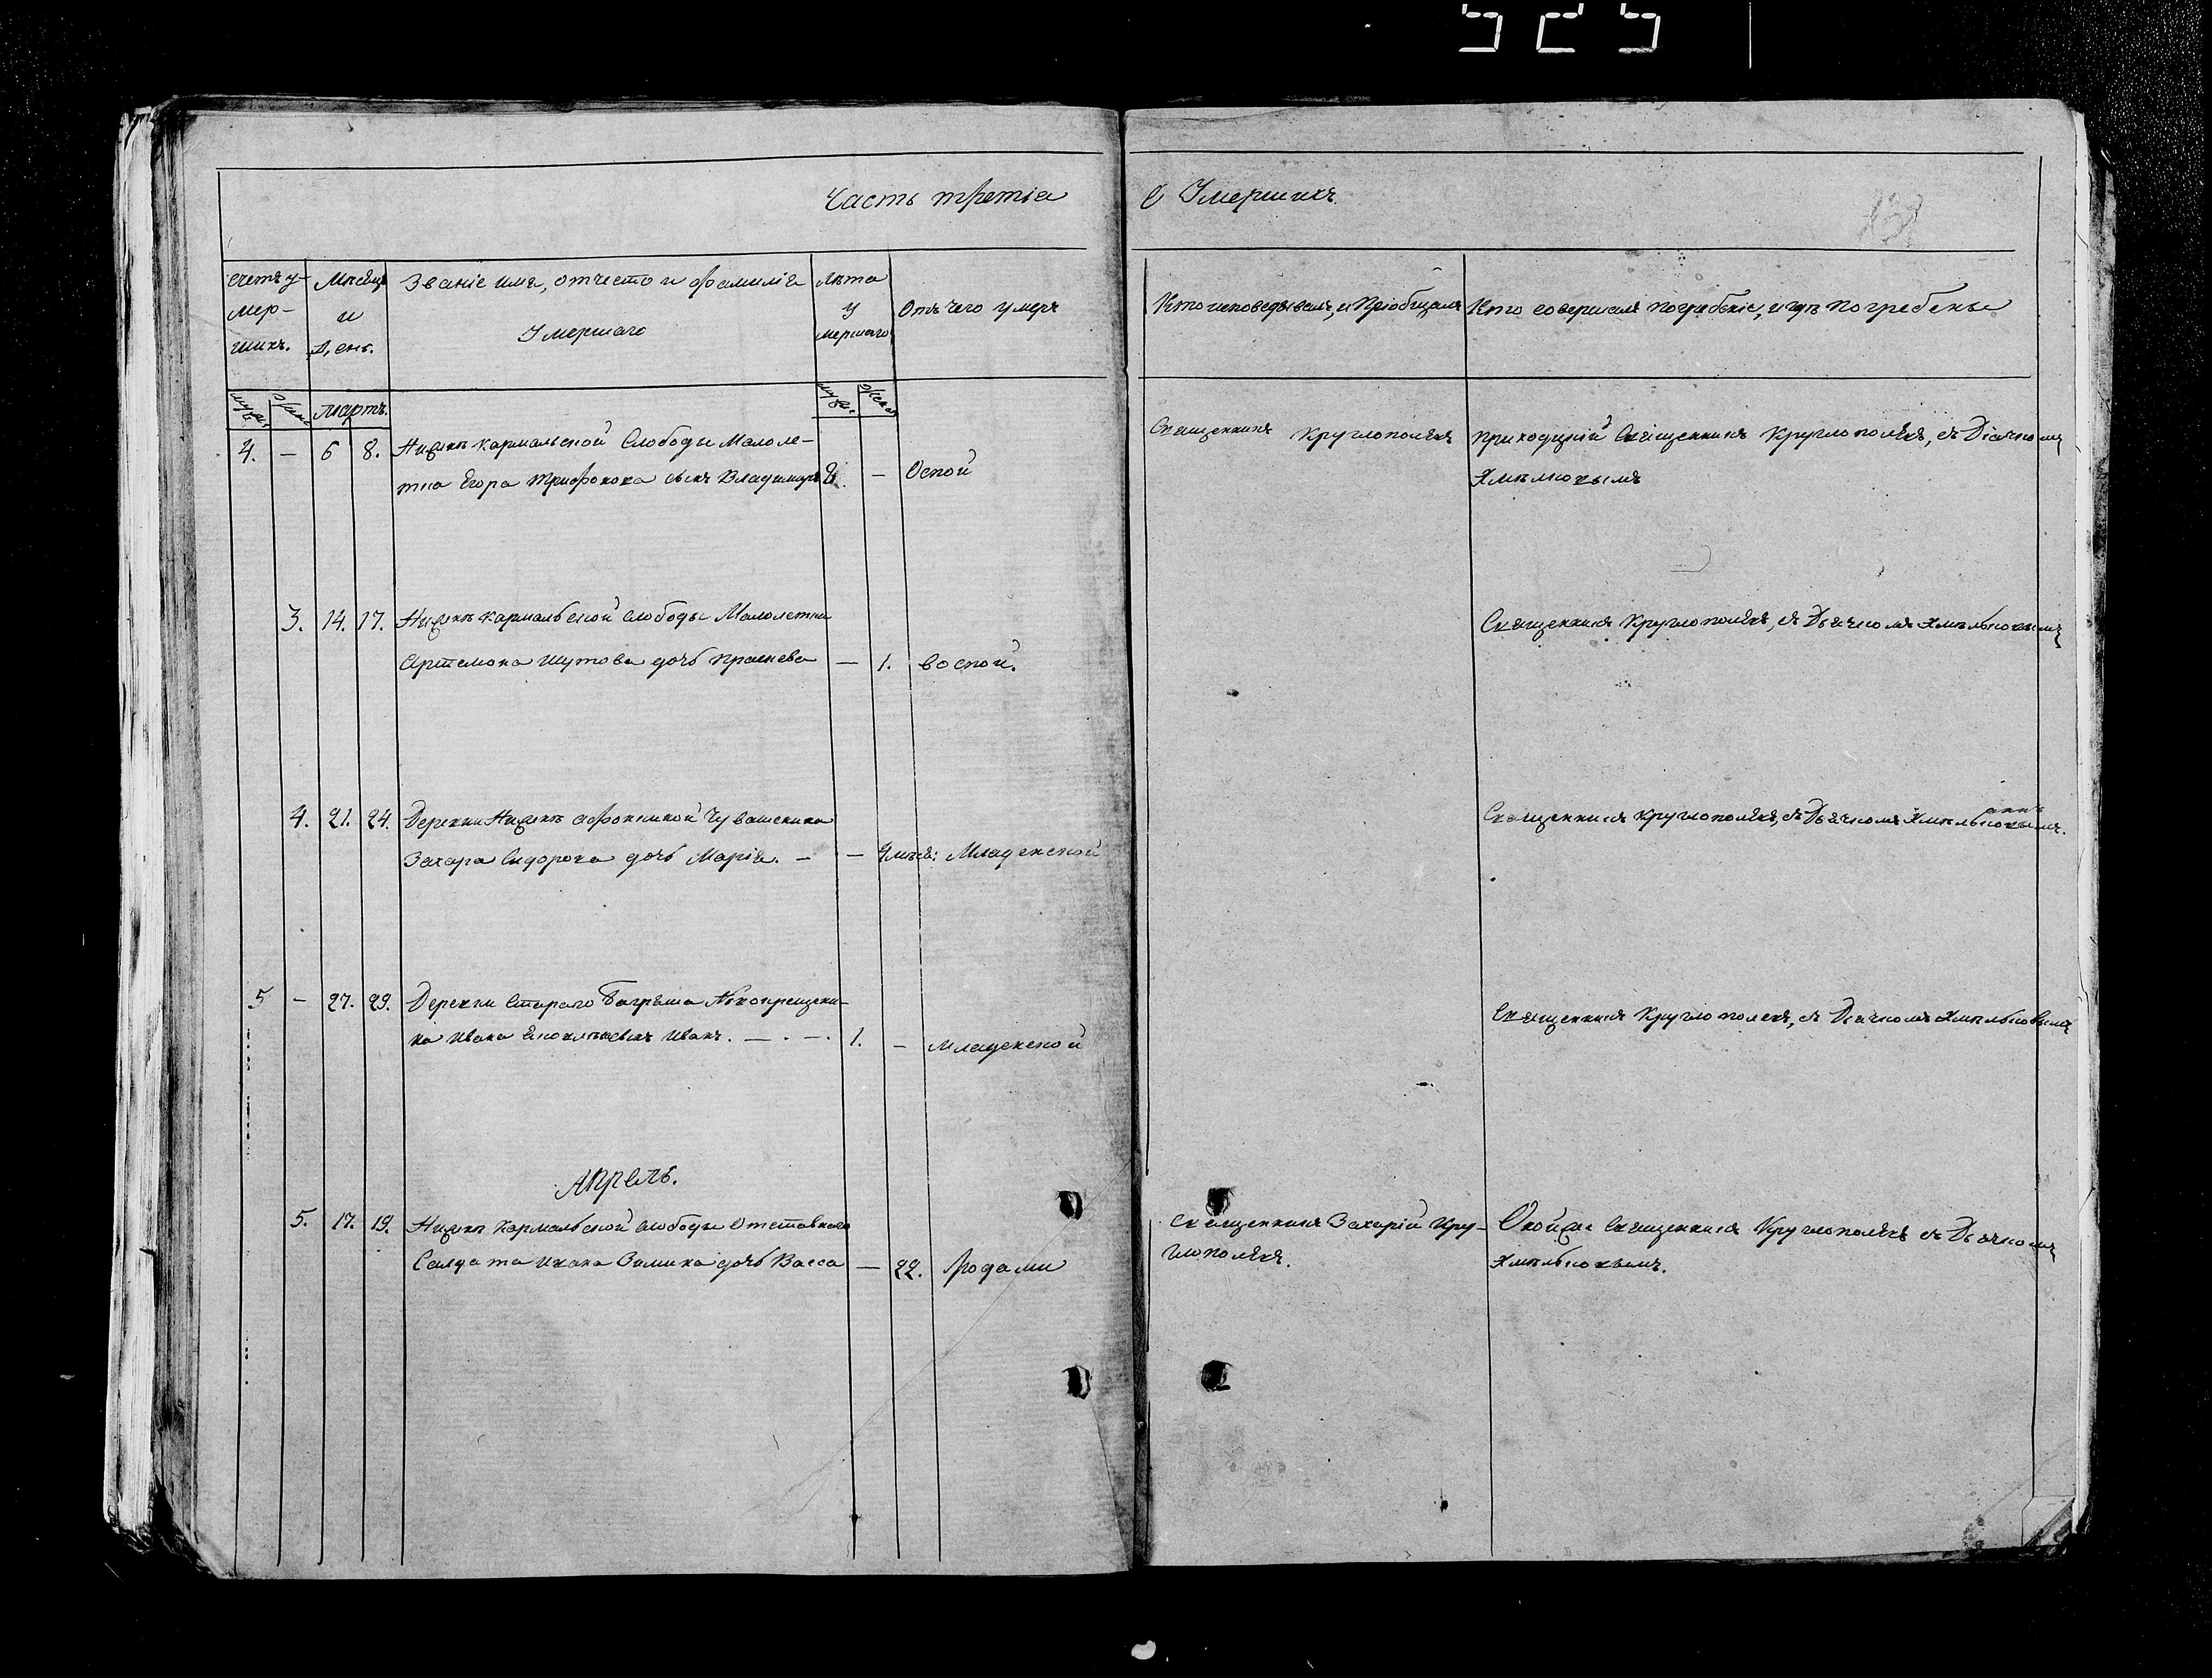 525
Часть третіа
О Умершихъ
Счетъ у-
мер-
шихъ.
Мѣсяцъ
и
День.
Званіе имя, отчество и фамиліа
Умершаго
Лѣта
у
мершаго
Отъ чего умеръ
Кто исповедывалъ, и Пріобщалъ
Кто совершалъ погребеніе, и гдѣ погребены
Мартъ.
4. — 6 8. Нижнѣ кармальской Слободы Малоле-
тна Егора Трифонова сынъ Владимиръ 8. — Оспой
Священникъ Круглополевъ
приходскій Священникъ Круглополевъ, съ Діячкомъ
Хмѣлювымъ
3. 14. 17. Нижнѣ кармальской слободы Малолетна
Артемона Шутова дочь — 1. воспой.
Священникъ Круглополевъ, съ Дьячкомъ Хмѣльновымъ
4. 21. 24. Деревни Нижнѣ Чувашенина
Захара Сидорова дочь Маріа. — — 4 мѣся: Младенской
Священникъ Круглополевъ, съ Дьячкомъ Хмѣльновымъ.
5 — 27. 29. Деревни Стараго Багряша Новокрещени-
на Ивана сынъ Иванъ. — . — . 1. — Младенской
Священникъ Круглополевъ, съ Дьячкомъ Хмѣльновымъ
Апрель.
5. 17. 19. Нижнѣ Кармальской слободы Отставнаго
Салдата Ивана Зимина дочь Васса — 22. Родами
Священникъ Захарій Кру-
глополевъ.
Священникъ Круглополевъ съ Дьячкомъ
Хмѣльновымъ.